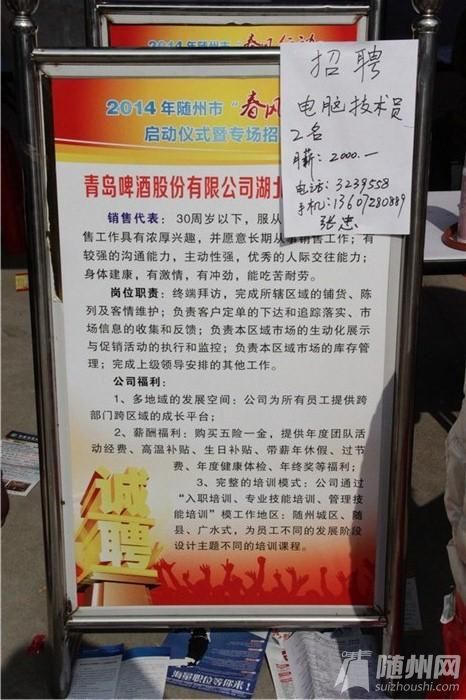 2014年随州市“春风行动
2014年随州市“春风
启动仪式暨专场招
招聘
电脑技术员
2名
月薪：2000.—
电话：3239558
手机：13607280889
张忠
青岛啤酒股份有限公司湖北
销售代表：30周岁以下，服从
售工作具有浓厚兴趣，并愿意长期从事销售工作；有
较强的沟通能力，主动性强，优秀的人际交往能力；
身体建康，有激情，有冲劲，能吃苦耐劳。
岗位职责：终端拜访，完成所辖区域的铺货、陈
列及客情维护；负责客户定单的下达和追踪落实、市
场信息的收集和反馈；负责本区域市场的生动化展示
与促销活动的执行和监控；负责本区域市场的库存管
理；完成上级领导安排的其他工作。
公司福利：
1、多地域的发展空间：公司为所有员工提供跨
部门跨区域的成长平台；
2、薪酬福利：购买五险一金，提供年度团队活
动经费、高温补贴、生日补贴、带薪年休假、过节
费、年度健康体检、年终奖等福利；
3、完整的培训模式：公司通过
“入职培训、专业技能培训、管理技
能培训”模工作地区：随州城区、随
县、广水式，为员工不同的发展阶段
设计主题不同的培训课程。
诚聘
随州网
suizhoushi.com